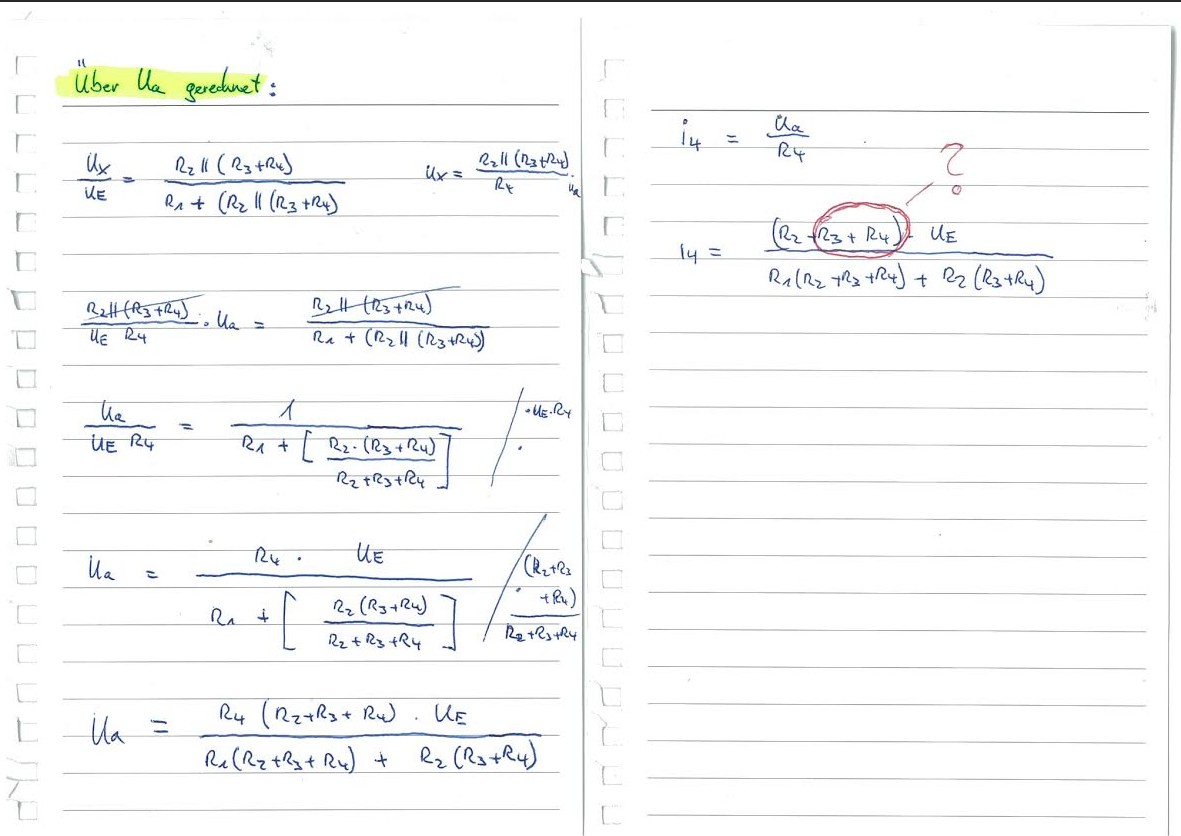 Über Ua gerechnet:
Ux/UE = R2 || (R3+R4) / R1 + (R2 || (R3+R4)    Ux = R2 || (R3+R4) / R4 · Ua
R2 || (R3+R4) / UE R4 · Ua = R2 || (R3+R4) / R1 + (R2 || (R3+R4))
Ua / UE R4 = 1 / R1 + [R2 · (R3+R4) / R2+R3+R4]    / · UE · R4
Ua = R4 · UE / R1 + [R2 (R3+R4) / R2+R3+R4]    / · (R2+R3+R4) / R2+R3+R4
Ua = R4 (R2+R3+R4) · UE / R1(R2+R3+R4) + R2 (R3+R4)
i4 = Ua / R4
?
i4 = (R2+R3+R4) · UE / R1(R2+R3+R4) + R2 (R3+R4)